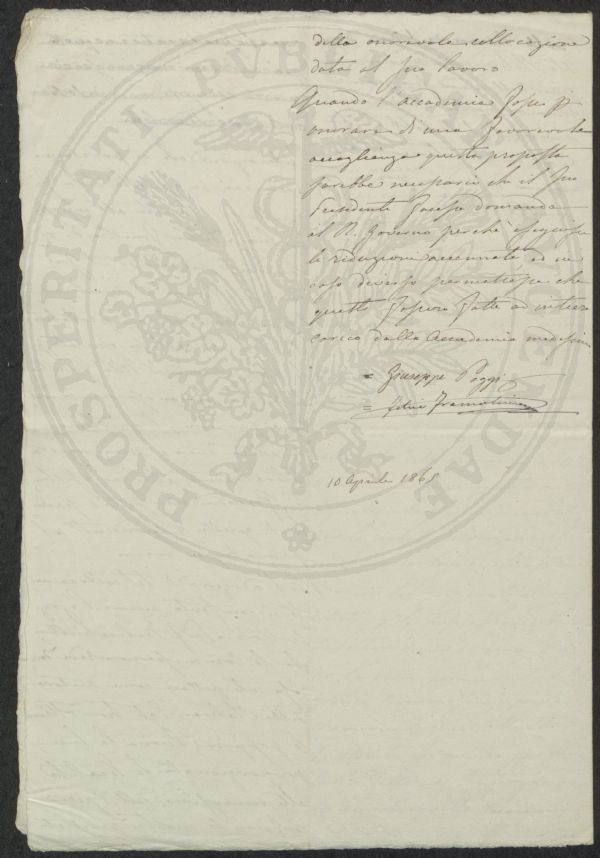 della onorevole collocazione
data al suo lavoro
Quando l'accademia fosse p
onorare di una favorevole
accoglienza questa proposta
sarebbe necessario che il suo
Presidente facesse domanda
al R. Governo perchè eseguisse
le riduzioni accennate ed in
caso diverso permettesse che
queste fossero fatte ad intiero
carico dalla Accademia medesima
= Giuseppe Poggi
= Felice Francolini
10 Aprile 1865
PROSPERITATI PUB AUGENDAE